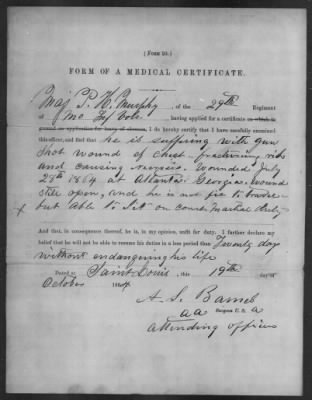 (FORM 10.)
FORM OF A MEDICAL CERTIFICATE.
Maj P. H. Murphy, of the 29th Regiment
of Mo Inf Vols having applied for a certificate on which to
ground an application for leave of absence, I do hereby certify that I have carefully examined
this officer, and find that he is suffering with gun
shot wound of Chest - fracturing ribs
and causing Wounded July
28th 1864 at Atlanta Georgia. Wound
still open, and he is not fit to travel
but able to sit on court Martial duty
And that, in consequence thereof, he is, in my opinion, unfit for duty. I further declare my
belief that he will not be able to resume his duties in a less period than Twenty days
without endangering his life
Dated at Saint Louis, this 19th day of
October 1864
A. S. Barnes
a a Surgeon U. S. A
attending officers